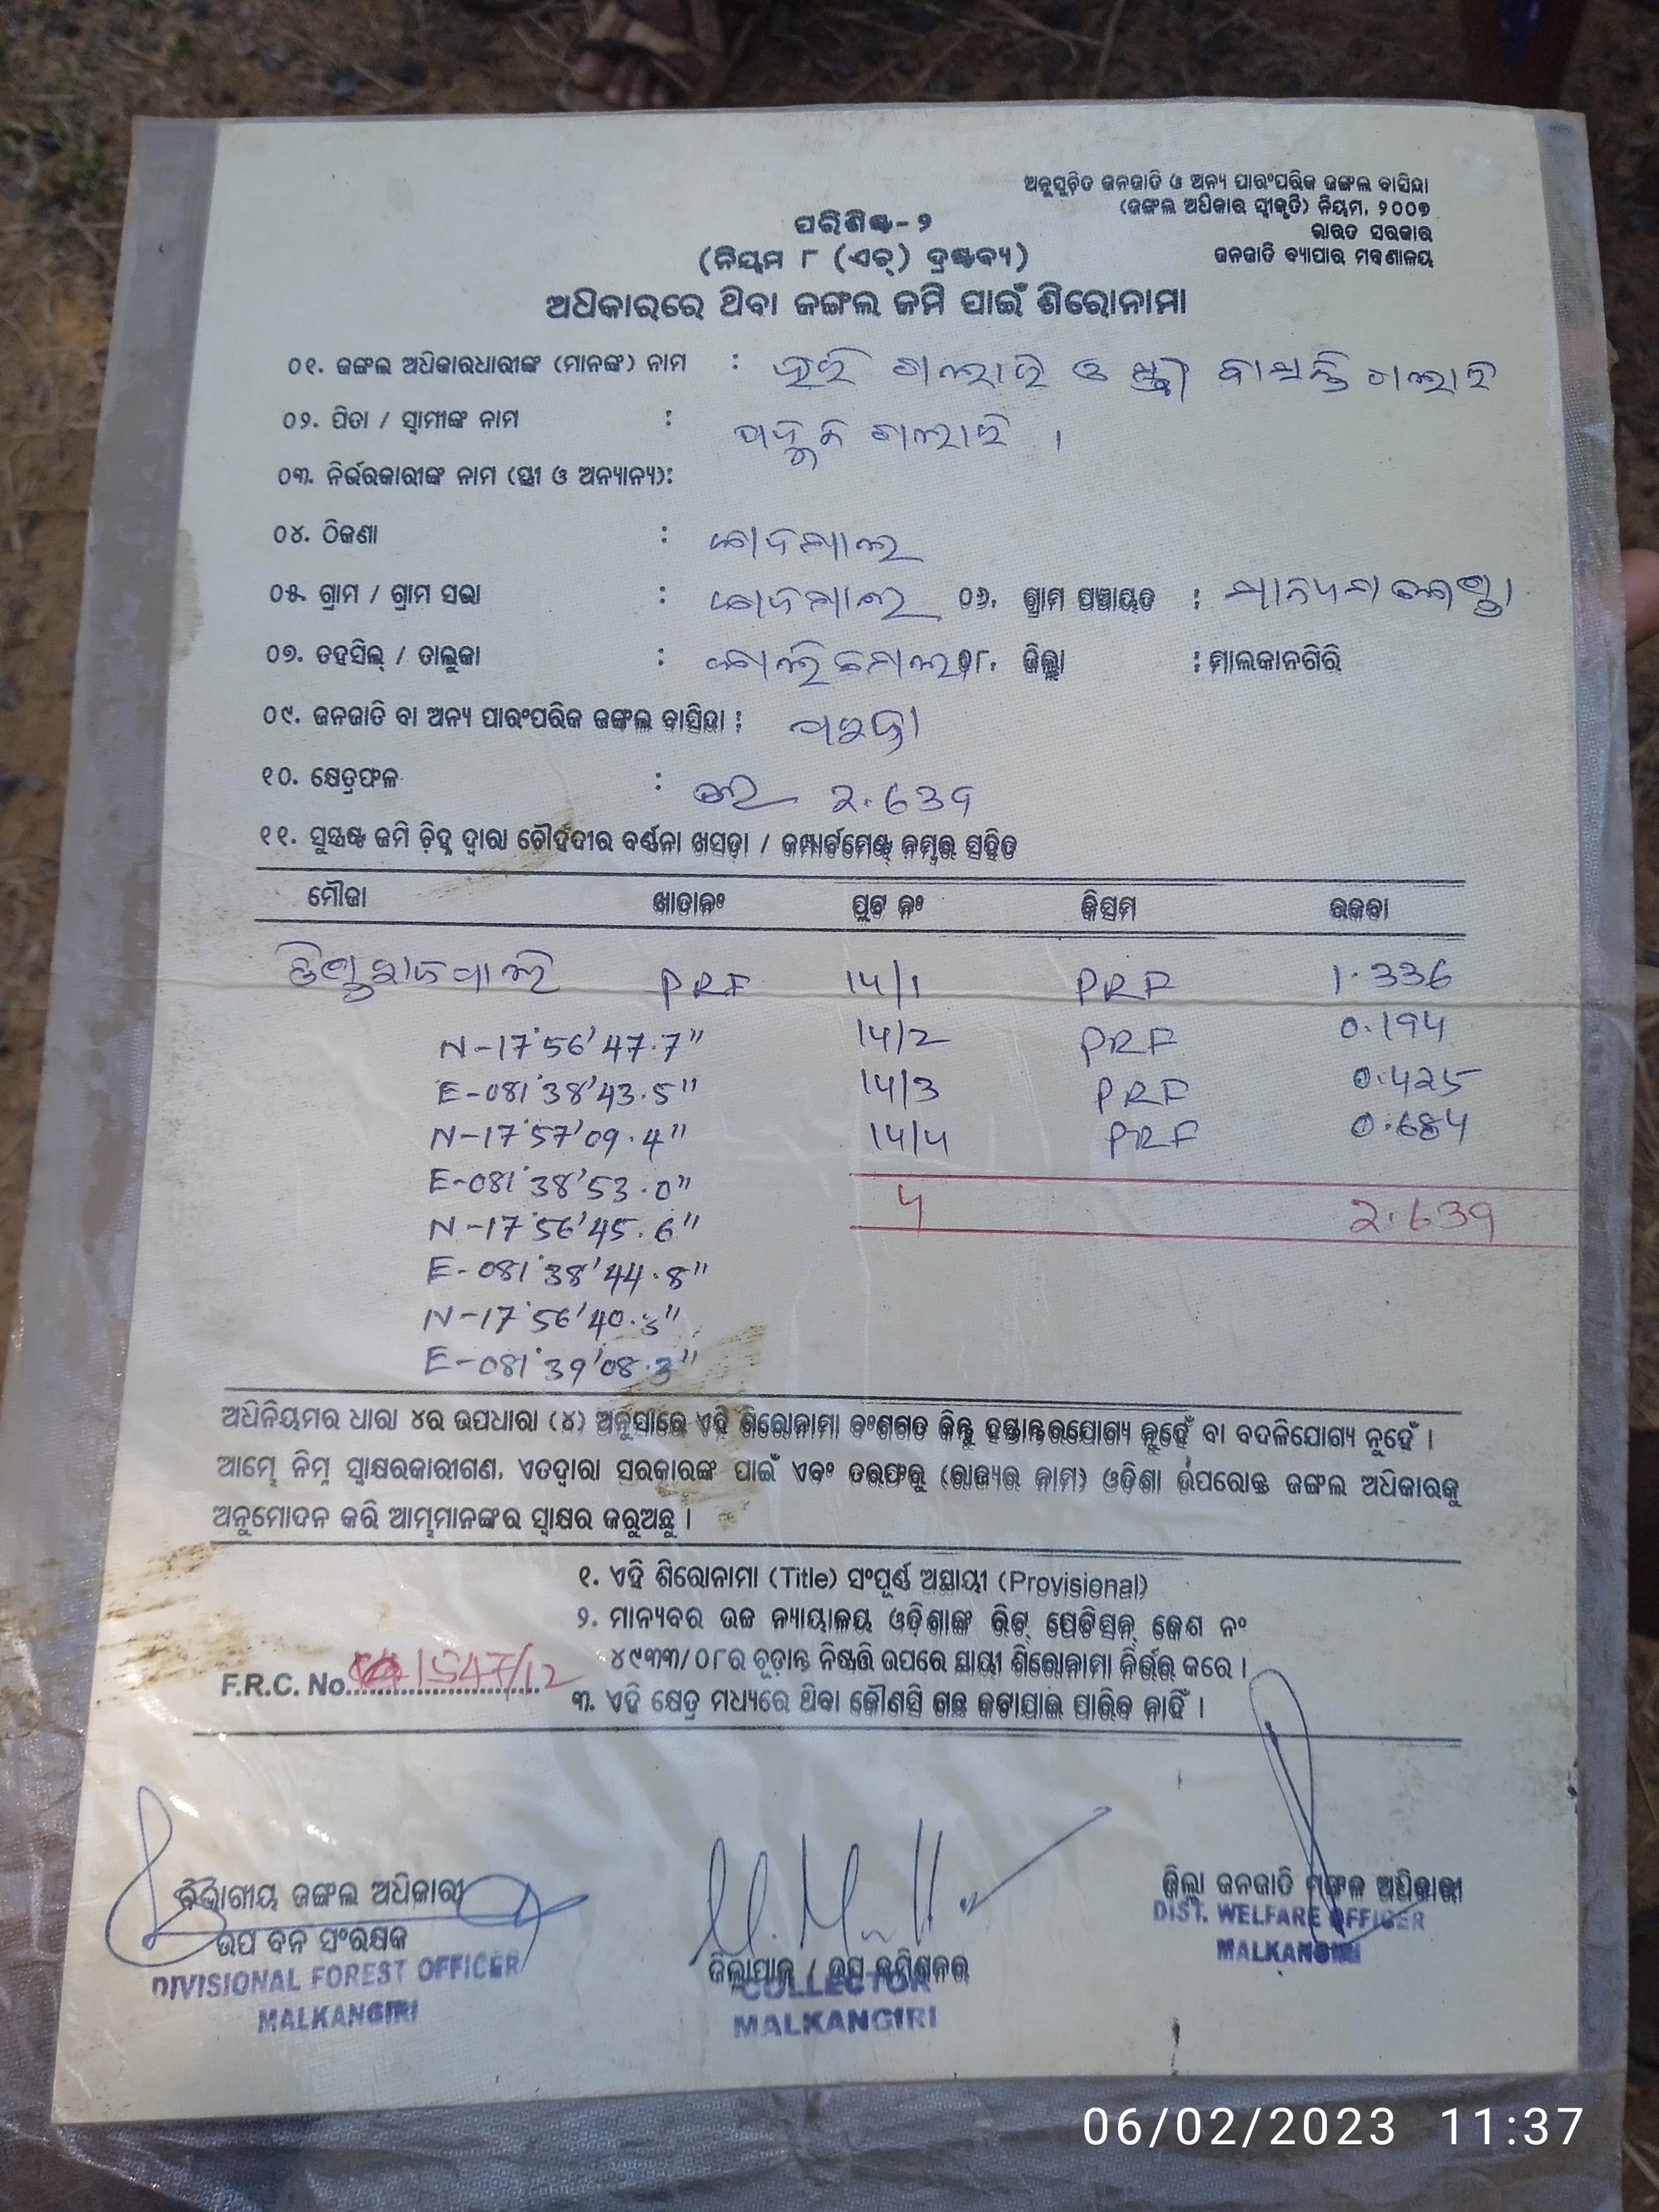 ଅନୁସୂଚିତ ଜନଜାତି ଓ ଅନ୍ୟ ପାରଂପରିକ ଜଙ୍ଗଲ ବାସିନ୍ଦା
(ଜଙ୍ଗଲ ଅଧିକାର ସ୍ୱୀକୃତି) ନିୟମ, ୨୦୦୭
ଭାରତ ସରକାର
ଜନଜାତି ବ୍ୟାପାର ମନ୍ତ୍ରଣାଳୟ
ପରିଶିଷ୍ଟ-୨
(ନିୟମ ୮ (ଏଚ୍) ଦ୍ରଷ୍ଟବ୍ୟ)
ଅଧିକାରରେ ଥିବା ଜଙ୍ଗଲ ଜମି ପାଇଁ ଶିରୋନାମା
୦୧. ଜଙ୍ଗଲ ଅଧିକାରଧାରୀଙ୍କ (ମାନଙ୍କ) ନାମ :
୦୨. ପିତା / ସ୍ୱାମୀଙ୍କ ନାମ :
୦୩. ନିର୍ଭରକାରୀଙ୍କ ନାମ (ସ୍ତ୍ରୀ ଓ ଅନ୍ୟାନ୍ୟ):
୦୪. ଠିକଣା :
୦୫. ଗ୍ରାମ / ଗ୍ରାମ ସଭା : ୦୬. ଗ୍ରାମ ପଞ୍ଚାୟତ :
୦୭. ତହସିଲ୍ / ତାଲୁକା : ୦୮. ଜିଲ୍ଲା : ମାଲକାନଗିରି
୦୯. ଜନଜାତି ବା ଅନ୍ୟ ପାରଂପରିକ ଜଙ୍ଗଲ ବାସିନ୍ଦା :
୧୦. କ୍ଷେତ୍ରଫଳ : 2.639
୧୧. ସୁସ୍ପଷ୍ଟ ଜମି ଚିହ୍ନ ଦ୍ୱାରା ଚୌହଦୀର ବର୍ଣ୍ଣନା ଖସଡ଼ା / କମ୍ପାର୍ଟମେଣ୍ଟ ନମ୍ବର ସହିତ
ମୌଜା ଖାତାନଂ ପ୍ଲଟ ନଂ କିସମ ରକବା
PRF 14/1 PRF 1.336
N-17°56'47.7" 14/2 PRF 0.194
E-081°38'43.5" 14/3 PRF 0.425
N-17°57'09.4" 14/4 PRF 0.684
E-081°38'53.0"
4 2.639
N-17°56'45.6"
E-081°38'44.8"
N-17°56'40.3"
E-081°39'08.3"
ଅଧିନିୟମର ଧାରା ୪ର ଉପଧାରା (୪) ଅନୁସାରେ ଏହି ଶିରୋନାମା ବଂଶଗତ କିନ୍ତୁ ହସ୍ତାନ୍ତରଯୋଗ୍ୟ ନୁହେଁ ବା ବଦଳିଯୋଗ୍ୟ ନୁହେଁ ।
ଆମ୍ଭେ ନିମ୍ନ ସ୍ୱାକ୍ଷରକାରୀଗଣ, ଏତଦ୍ୱାରା ସରକାରଙ୍କ ପାଇଁ ଏବଂ ତରଫରୁ (ରାଜ୍ୟର ନାମ) ଓଡ଼ିଶା ଉପରୋକ୍ତ ଜଙ୍ଗଲ ଅଧିକାରକୁ
ଅନୁମୋଦନ କରି ଆମ୍ଭମାନଙ୍କର ସ୍ୱାକ୍ଷର କରୁଅଛୁ ।
୧. ଏହି ଶିରୋନାମା (Title) ସଂପୂର୍ଣ୍ଣ ଅସ୍ଥାୟୀ (Provisional)
୨. ମାନ୍ୟବର ଉଚ୍ଚ ନ୍ୟାୟାଳୟ ଓଡ଼ିଶାଙ୍କ ରିଟ୍ ପେଟିସନ୍ କେଶ ନଂ
୪୯୩୩/୦୮ର ଚୂଡ଼ାନ୍ତ ନିଷ୍ପତ୍ତି ଉପରେ ସ୍ଥାୟୀ ଶିରୋନାମା ନିର୍ଭର କରେ ।
F.R.C. No. 1547/12
୩. ଏହି କ୍ଷେତ୍ର ମଧ୍ୟରେ ଥିବା କୌଣସି ଗଛ କଟାଯାଇ ପାରିବ ନାହିଁ ।
ବିଭାଗୀୟ ଜଙ୍ଗଲ ଅଧିକାରୀ
ଉପ ବନ ସଂରକ୍ଷକ
DIVISIONAL FOREST OFFICER
MALKANGIRI
ଜିଲ୍ଲାପାଳ / ଉପ କମିଶନର
COLLECTOR
MALKANGIRI
ଜିଲ୍ଲା ଜନଜାତି ମଙ୍ଗଳ ଅଧିକାରୀ
DIST. WELFARE OFFICER
MALKANGIRI
06/02/2023 11:37